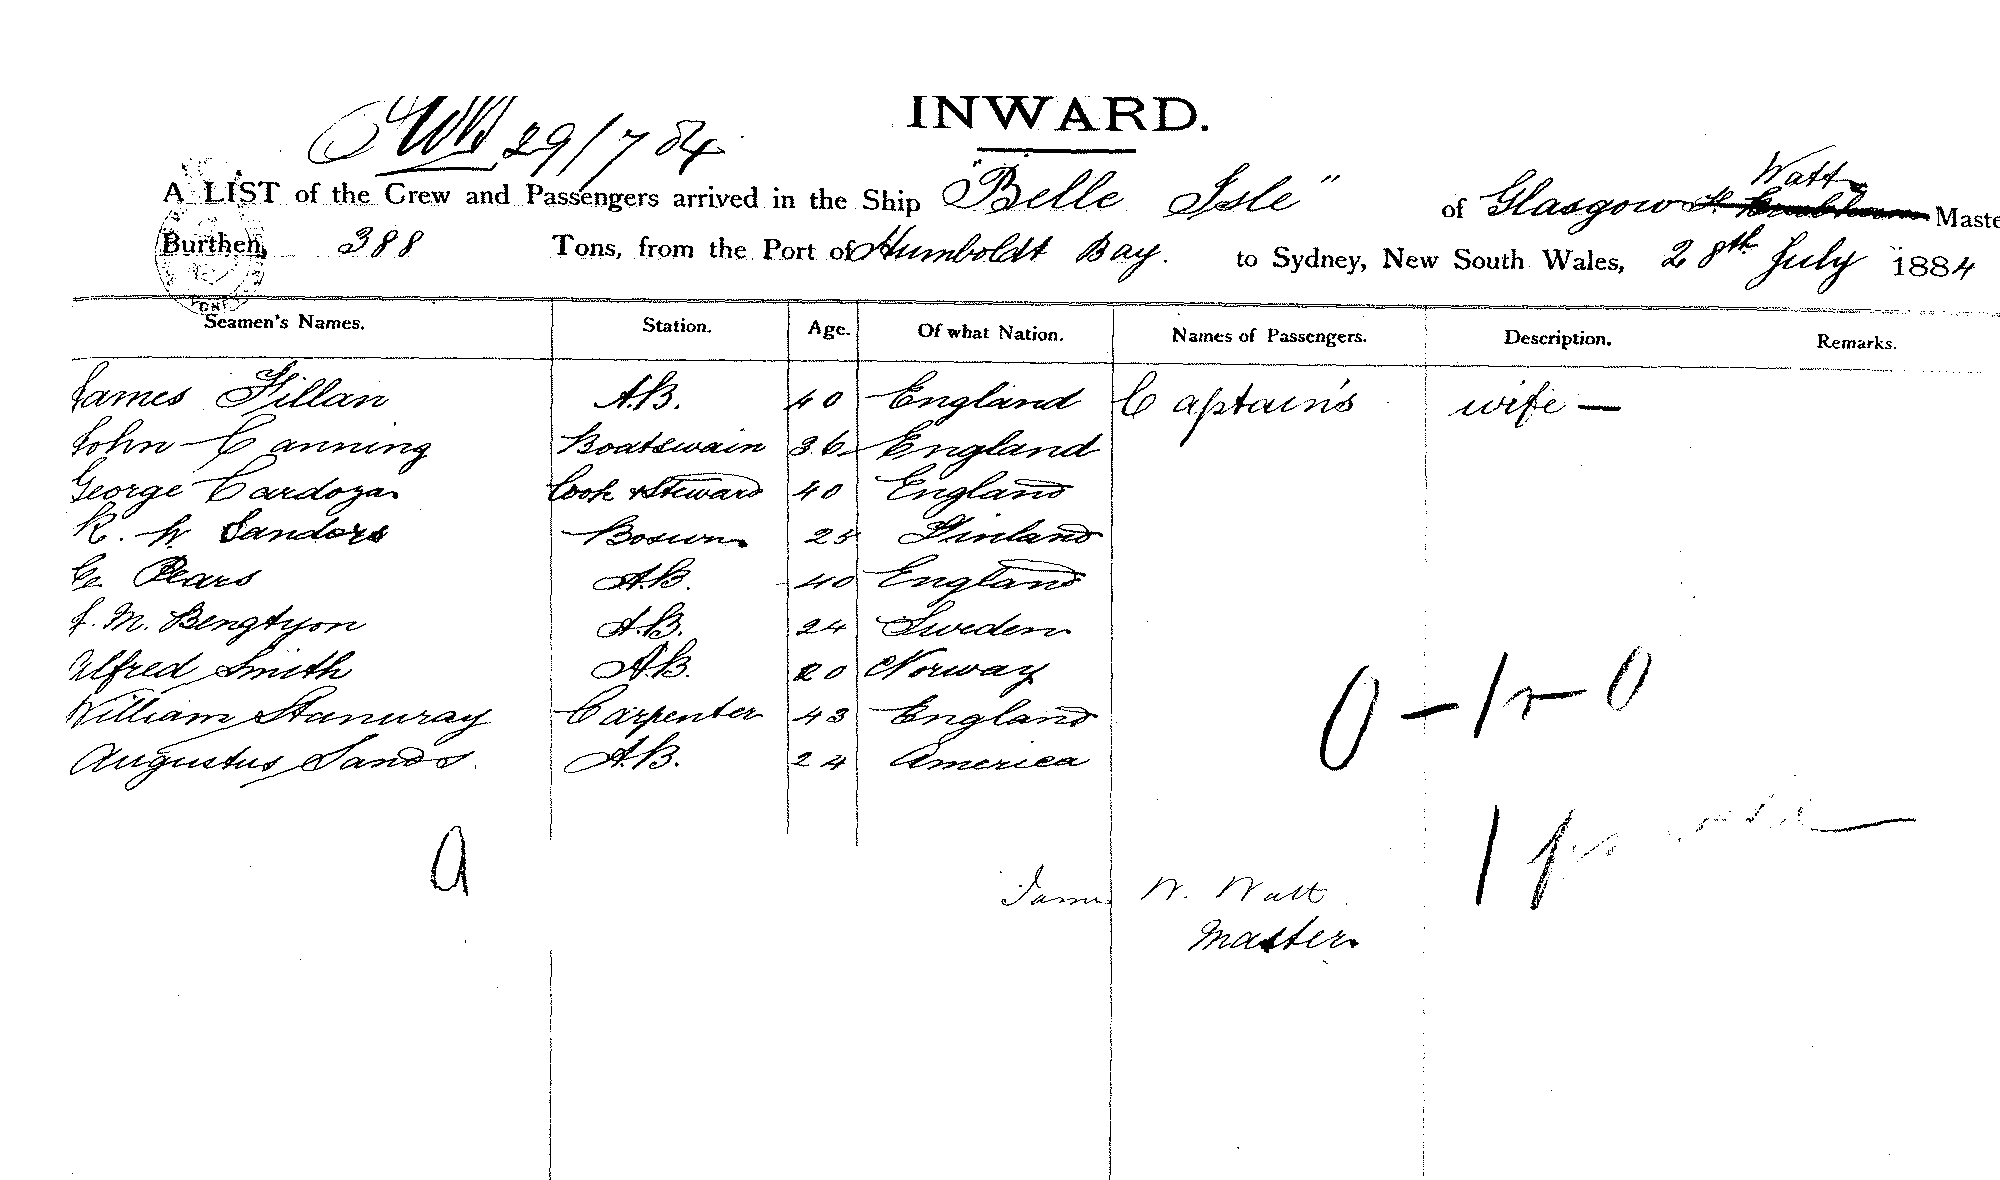 INWARD.
29/7 84
A LIST of the Crew and Passengers arrived in the Ship "Belle Isle" of Glasgow Watt Maste
Burthen, 388 Tons, from the Port of Humboldt Bay. to Sydney, New South Wales, 28th July 1884
Seamen's Names. Station. Age. Of what Nation. Names of Passengers. Description. Remarks.
James Fillan A.B. 40 England Captain's wife —
John Canning Boatswain 36 England
George Cardoza Cook & Steward 40 England
R. W Sandors Bosun 25 Finland
G. Pears A.B. 40 England
J. M. Bengtyon A.B. 24 Sweden
Alfred Smith A.B. 20 Norway
William Stanway Carpenter 43 England
Augustus Sands. A.B. 24 America
0 – 1 – 0
1
James W. Watt
Master